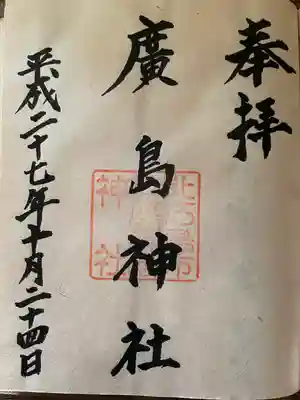 奉拝
廣島神社
平成二十七年十月二十四日